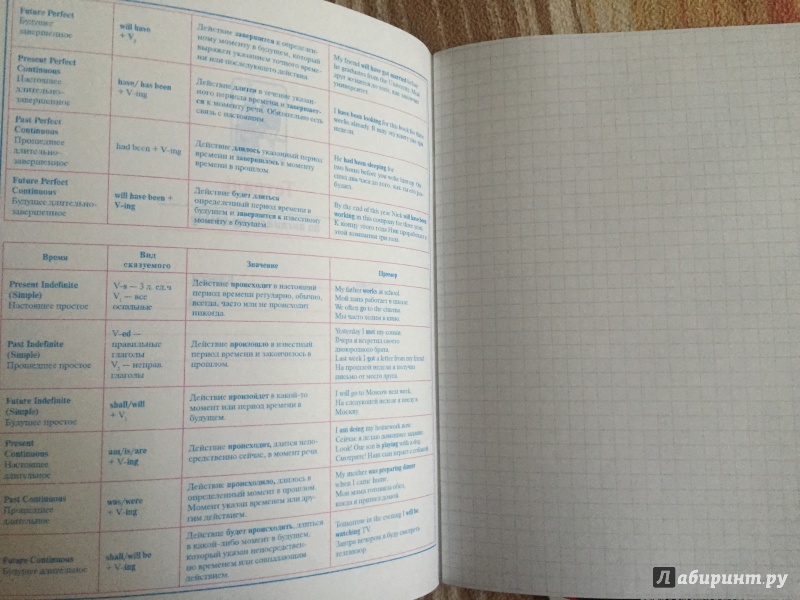 Future Perfect
Будущее
завершенное
will have
+ V₃
Действие завершится к определен-
ному моменту в будущем, который
выражен указанием точного време-
ни или последующего действия.
My friend will have got married before
he graduates from the University. Мой
друг женится до того, как закончит
университет.
Present Perfect
Continuous
Настоящее
длительно-
завершенное
have/ has been
+ V-ing
Действие длится в течение указан-
ного периода времени и завершает-
ся к моменту речи. Обязательно есть
связь с настоящим.
I have been looking for this book for three
weeks already. Я ищу эту книгу уже три
недели.
Past Perfect
Continuous
Прошедшее
длительно-
завершенное
had been + V-ing
Действие длилось указанный период
времени и завершилось к моменту
времени в прошлом.
He had been sleeping for
two hours before you woke him up. Он
спал два часа до того, как ты его раз-
будил.
Future Perfect
Continuous
Будущее длительно-
завершенное
will have been +
V-ing
Действие будет длиться
определенный период времени в
будущем и завершится к известному
моменту в будущем.
By the end of this year Nick will have been
working in this company for three years.
К концу этого года Ник проработает в
этой компании три года.
Время
Вид
сказуемого
Значение
Пример
Present Indefinite
(Simple)
Настоящее простое
V-s — 3 л. ед.ч
V₁ — все
остальные
Действие происходит в настоящий
период времени регулярно, обычно,
всегда, часто или не происходит
никогда.
My father works at school.
Мой папа работает в школе.
We often go to the cinema.
Мы часто ходим в кино.
Past Indefinite
(Simple)
Прошедшее простое
V-ed —
правильные
глаголы
V₂ — неправ.
глаголы
Действие произошло в известный
период времени и закончилось в
прошлом.
Yesterday I met my cousin.
Вчера я встретил своего
двоюродного брата.
Last week I got a letter from my friend
На прошлой неделе я получил
письмо от моего друга.
Future Indefinite
(Simple)
Будущее простое
shall/will
+ V₁
Действие произойдет в какой-то
момент или период времени в
будущем.
I will go to Moscow next week.
На следующей неделе я поеду в
Москву.
Present
Continuous
Настоящее
длительное
am/is/are
+ V-ing
Действие происходит, длится непо-
средственно сейчас, в момент речи
I am doing my homework now.
Сейчас я делаю домашнее задание.
Look! Our son is playing with a dog.
Смотрите! Наш сын играет с собакой
Past Continuous
Прошедшее
длительное
was/were
+ V-ing
Действие происходило, длилось в
определенный момент в прошлом.
Момент указан временем или дру-
гим действием.
My mother was preparing dinner
when I came home.
Моя мама готовила обед,
когда я пришел домой
Future Continuous
Будущее длительное
shall/will be
+ V-ing
Действие будет происходить, длиться
в какой-либо момент в будущем,
который указан непосредствен-
но временем или совпадающим
действием.
Tomorrow in the evening I will be
watching TV.
Завтра вечером я буду смотреть
телевизор
Лабиринт.ру